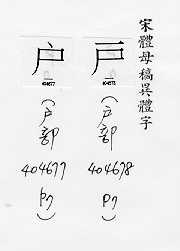 宋體母稿異體字
戸
404678
（戸部
404678
P7）
户
404677
（户部
404677
P7）